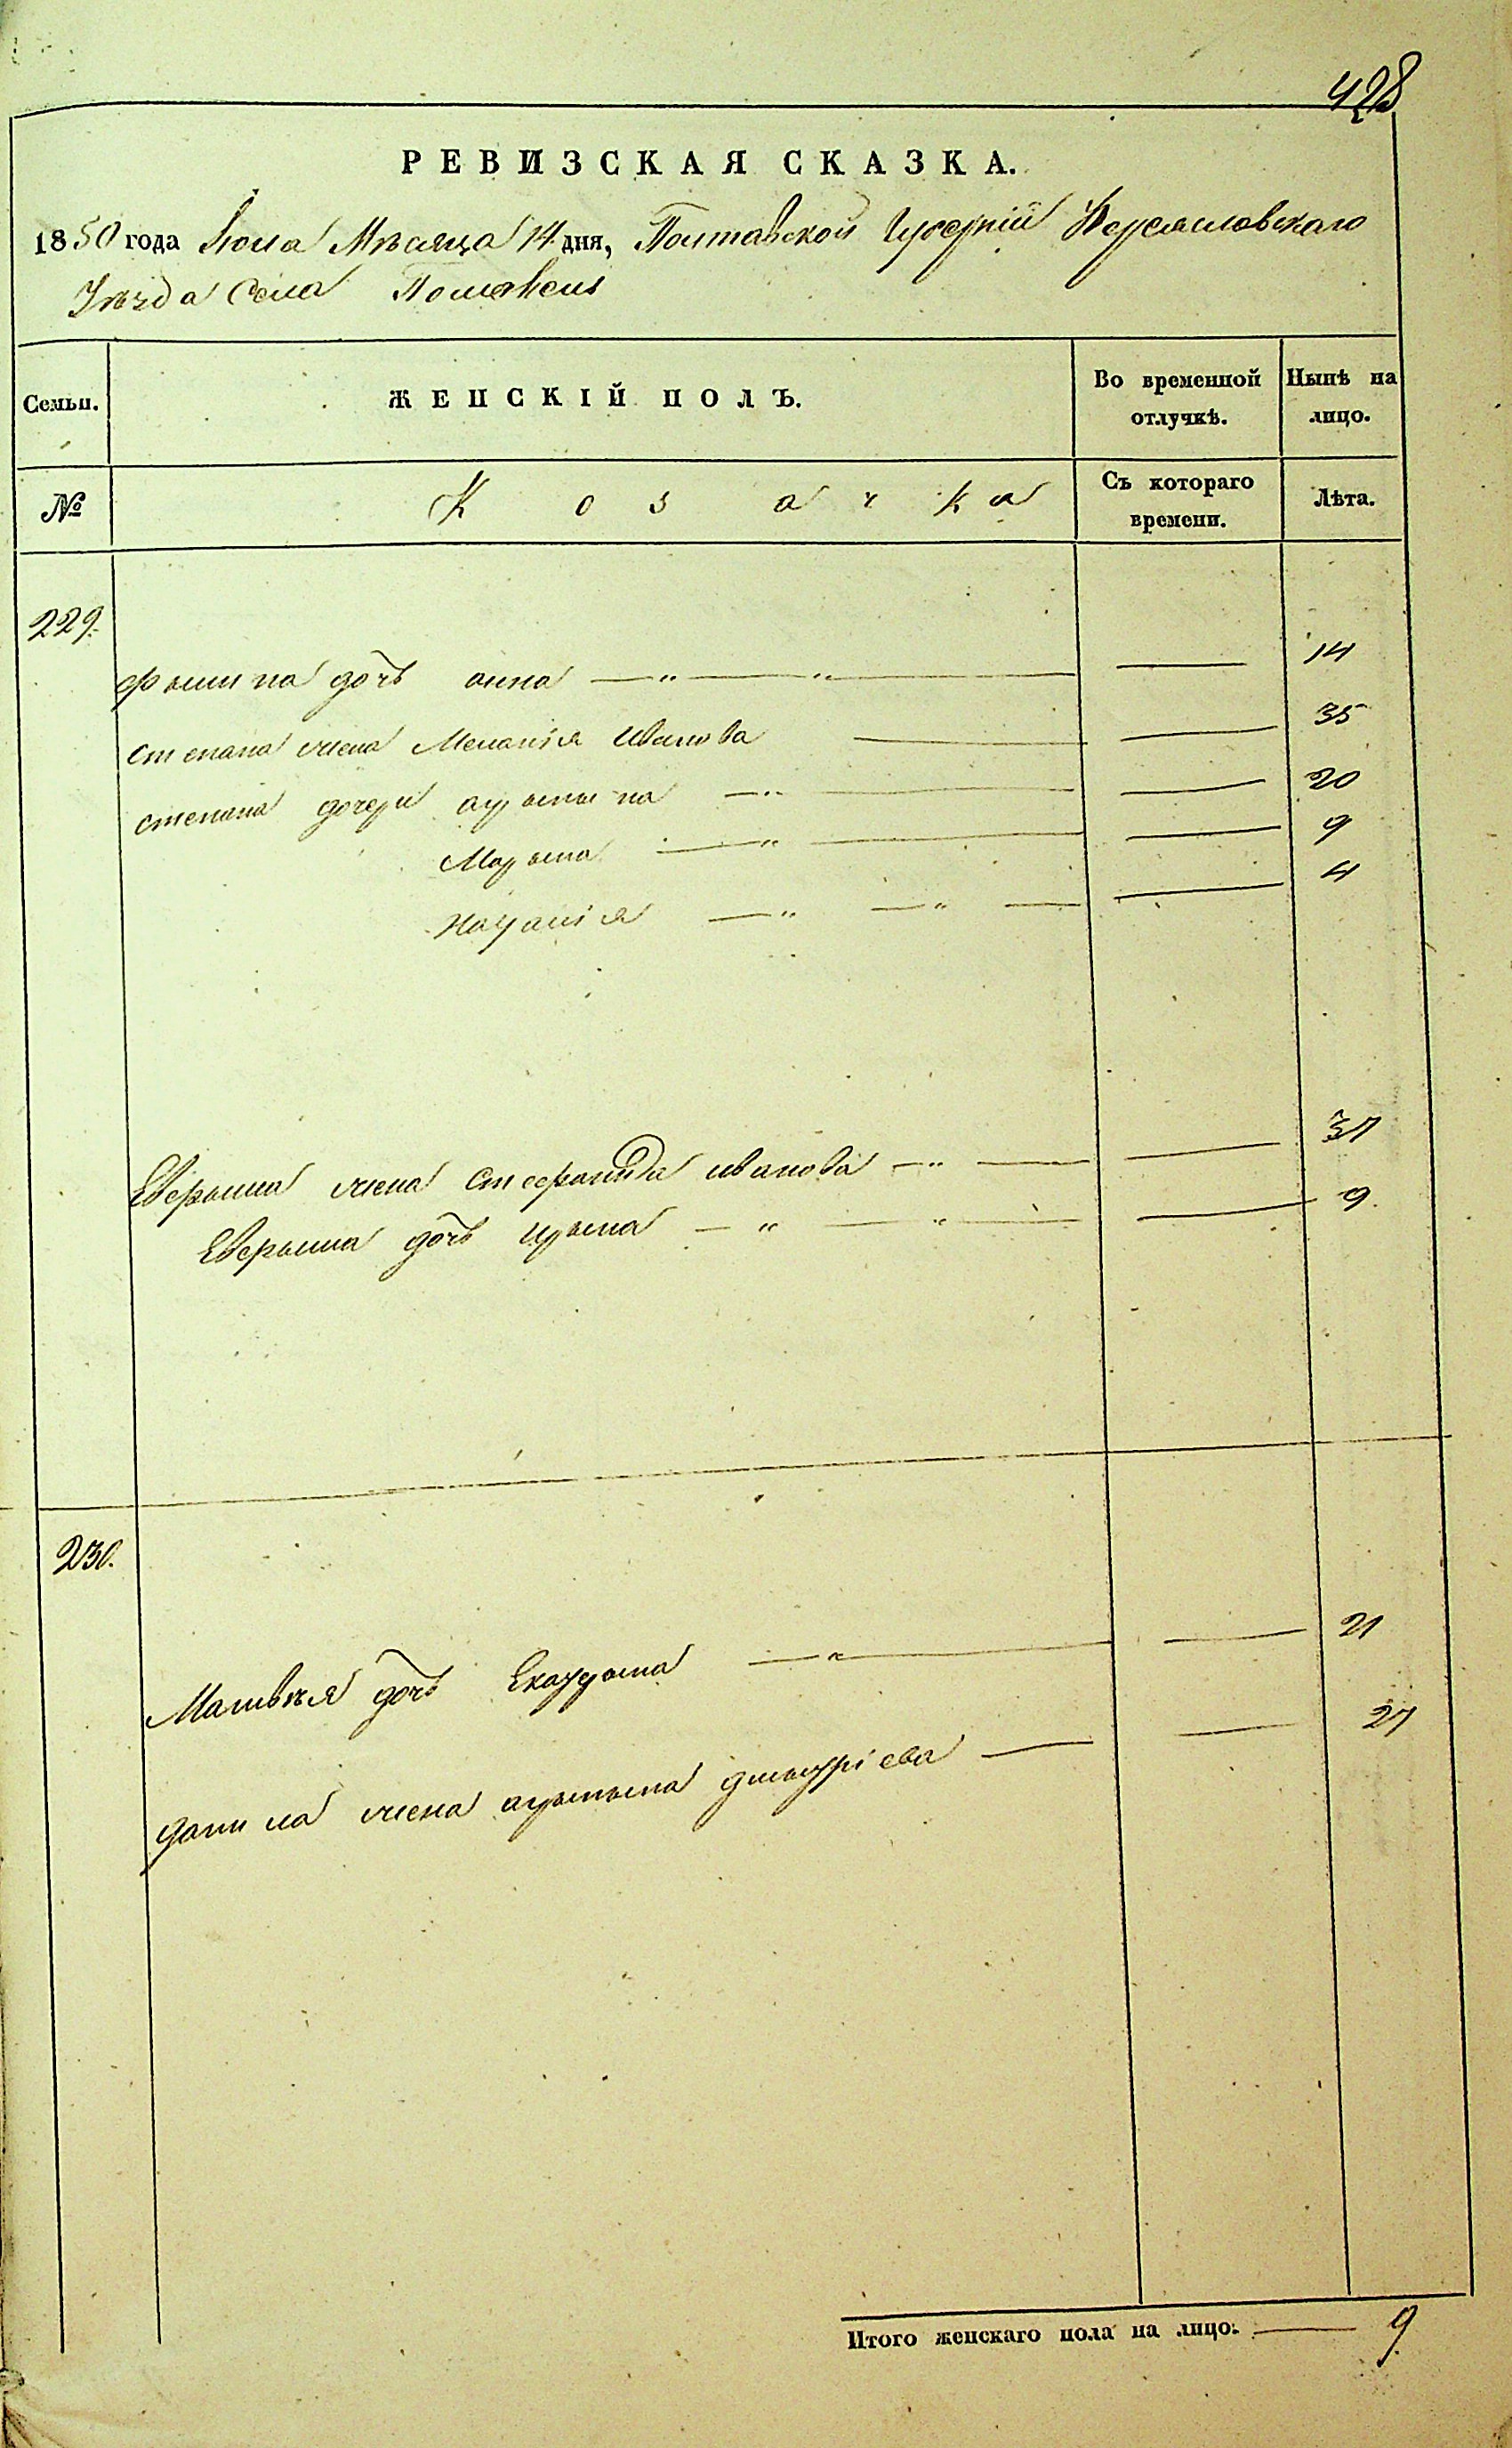 428
РЕВИЗСКАЯ СКАЗКА.
1850 года Июля Мѣсяца 14 дня, Полтавской Губерніи Переяславскаго
Уѣзда Села Помоклей
Семьи. ЖЕНСКІЙ ПОЛЪ. Во временной отлучкѣ. Нынѣ на лицо.
№ Козачка Съ котораго времени. Лѣта.
229.
дочь анна — 14
степана жена Меланія Иванова — 35
степана дочери — 20
Марына — 9
Наталія — 4
жена стефанида иванова — 37
дочь ирына — 9.
230.
Матвѣя дочь — 21
данила жена дмытріева — 27
Итого женскаго пола на лицо: — 9